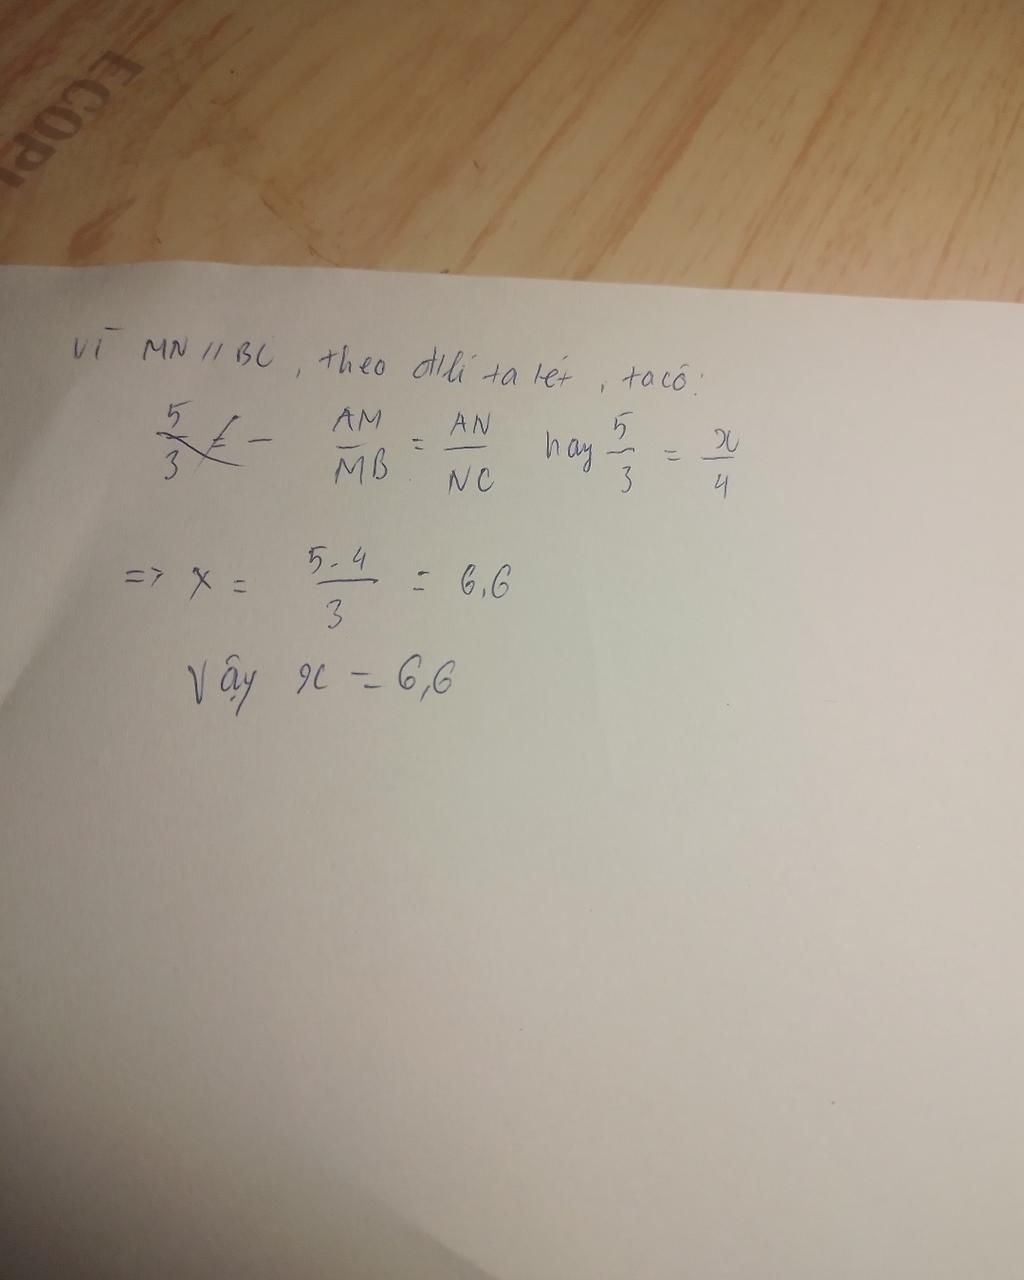 ECOPI
Vì MN // BC, theo đ/lí ta lét, ta có:
5/3 = — AM/MB = AN/NC hay 5/3 = x/4
=> x = 5.4/3 = 6,6
Vậy x = 6,6